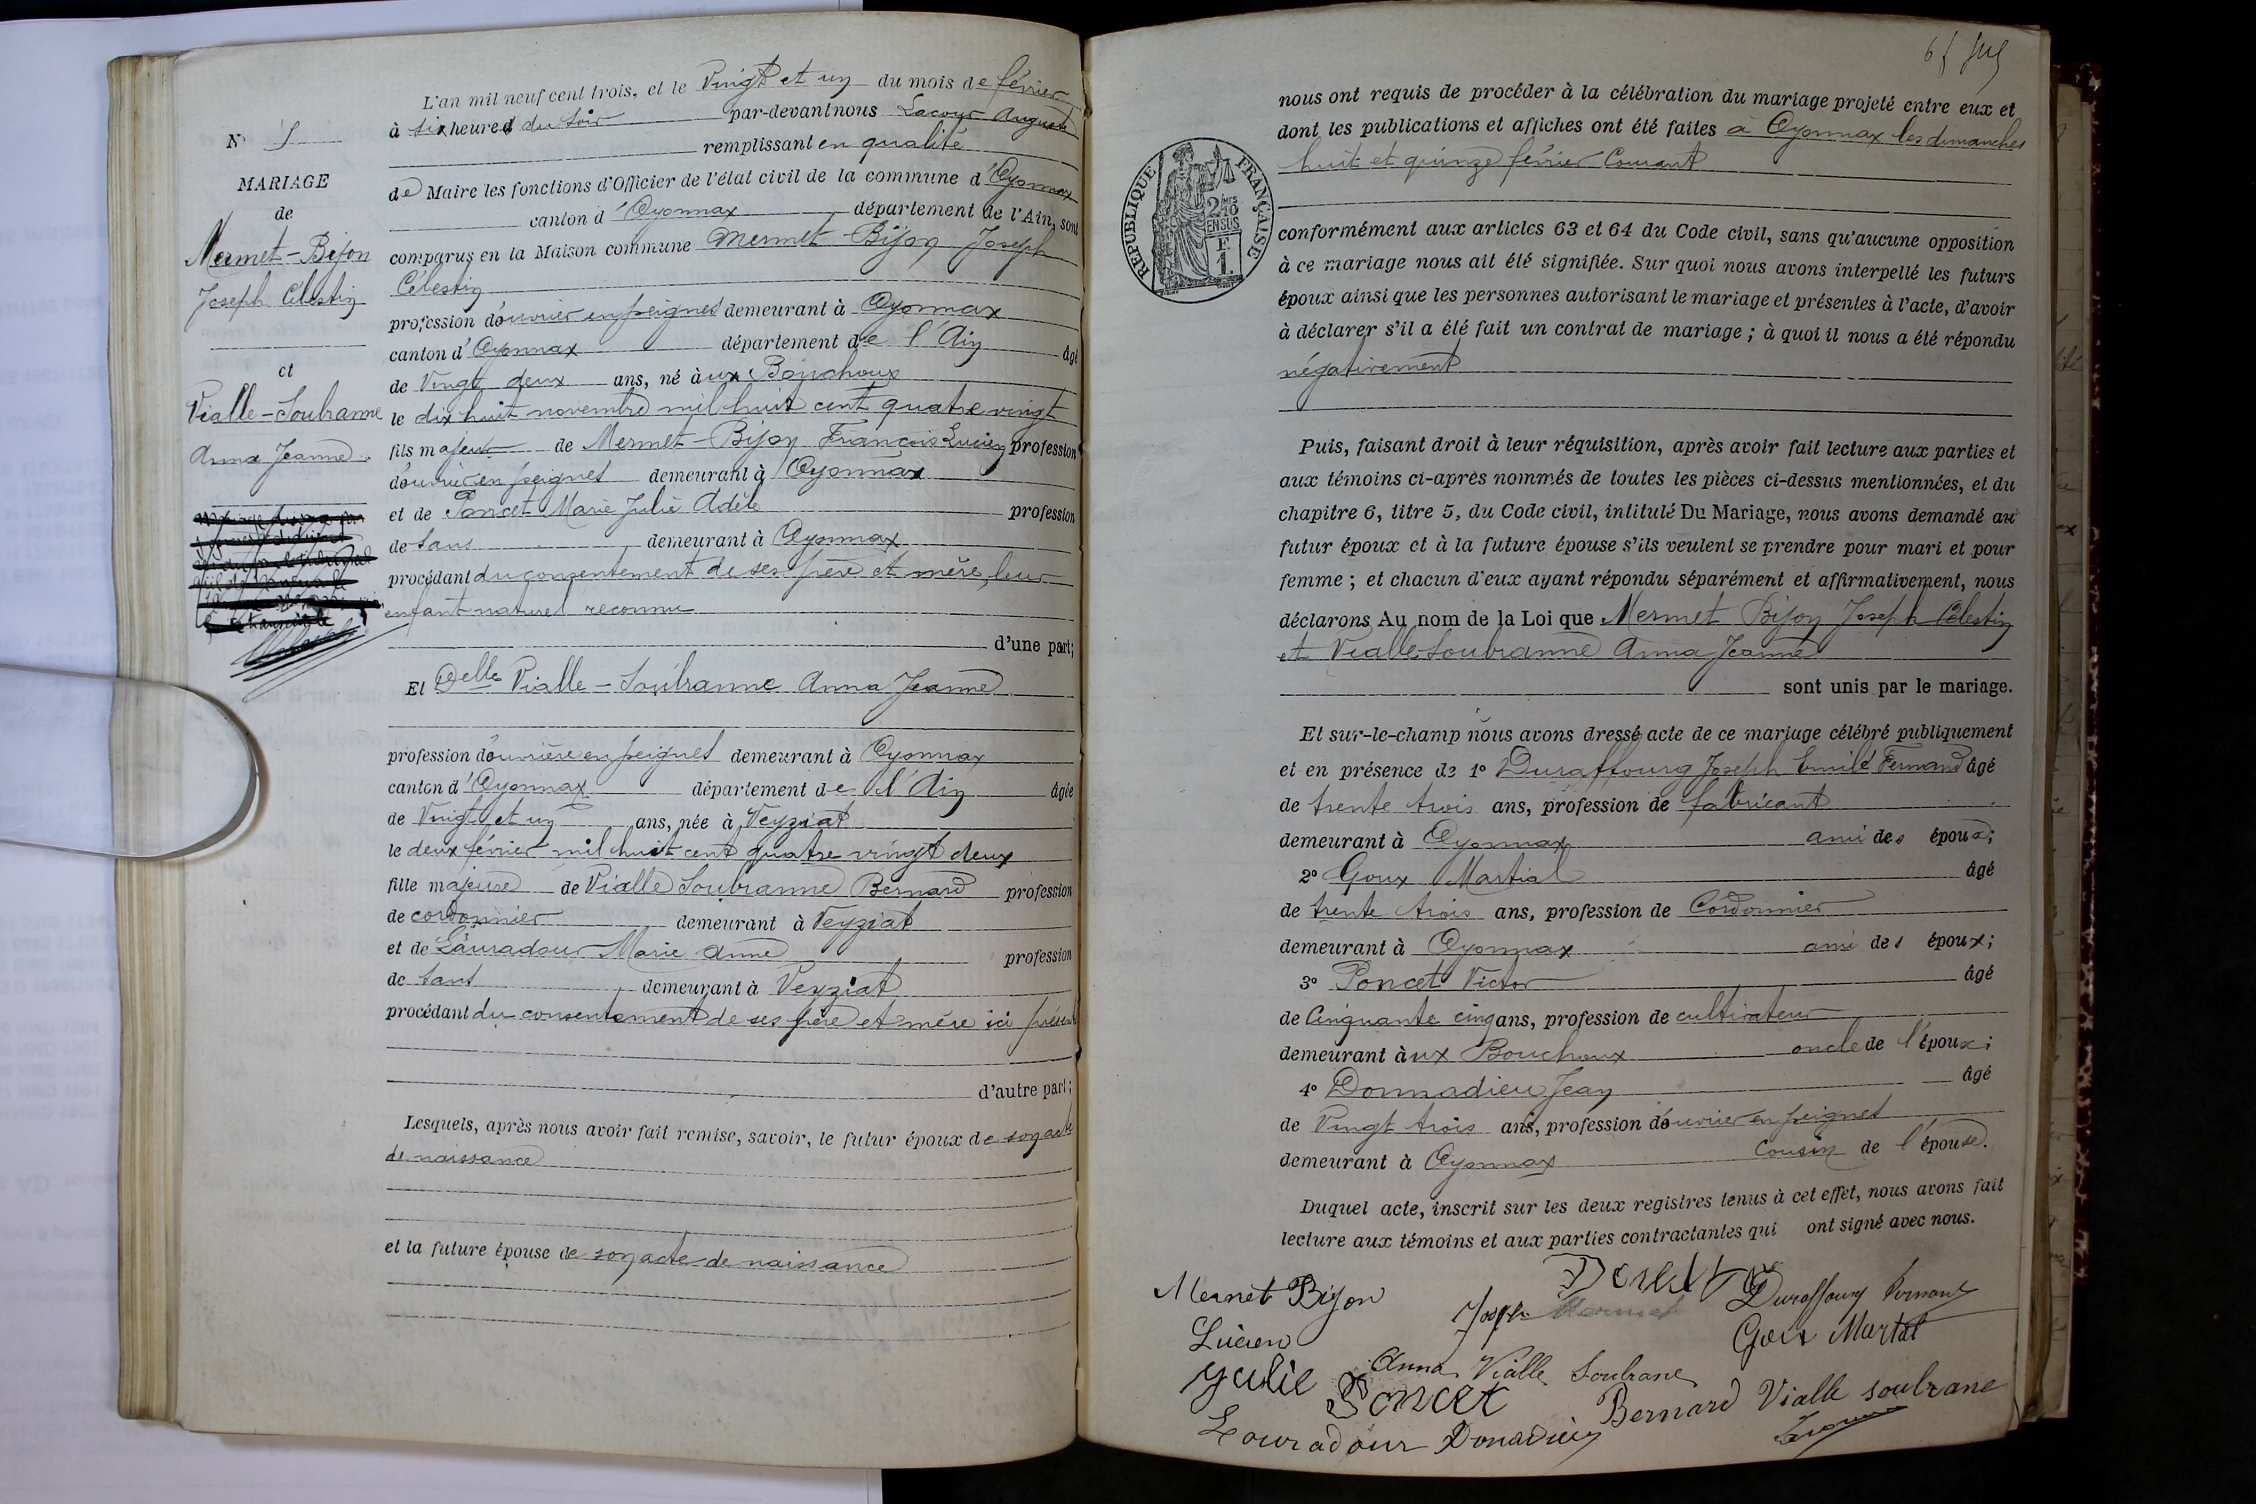 L'an mil neuf cent trois, et le Vingt et un du mois de février
à six heures du soir par-devant nous Lacour Auguste
remplissant en qualité
de Maire les fonctions d'Officier de l'état civil de la commune d'Oyonnax
canton d'Oyonnax département de l'Ain, sont
comparus en la Maison commune Mermet-Bijon Joseph
Célestin
profession d'ouvrier en peignes demeurant à Oyonnax
canton d'Oyonnax département de l'Ain âgé
de Vingt deux ans, né aux Bouchoux
le dix huit novembre mil huit cent quatre vingt
fils majeur de Mermet-Bijon François Lucien profession
d'ouvrier en peignes demeurant à Oyonnax
et de Poncet Marie Julie Adèle profession
de sans demeurant à Oyonnax
procédant du consentement de ses père et mère, leur
enfant naturel reconnu
d'une part;
Et Delle Vialle-Soubranne Anna Jeanne
profession d'ouvrière en peignes demeurant à Oyonnax
canton d'Oyonnax département de l'Ain âgée
de Vingt et un ans, née à Veyziat
le deux février mil huit cent quatre vingt deux
fille majeure de Vialle Soubranne Bernard profession
de cordonnier demeurant à Veyziat
et de Lauradour Marie Anne profession
de sans demeurant à Veyziat
procédant du consentement de ses père et mère ici présents
d'autre part;
Lesquels, après nous avoir fait remise, savoir, le futur époux de son acte
de naissance
et la future épouse de son acte de naissance
N°
MARIAGE
de
Mermet-Bijon
Joseph Célestin
et
Vialle-Soubranne
Anna Jeanne.
nous ont requis de procéder à la célébration du mariage projeté entre eux et
dont les publications et affiches ont été faites à Oyonnax les dimanches
huit et quinze février Courant
RÉPUBLIQUE FRANÇAISE
conformément aux articles 63 et 64 du Code civil, sans qu'aucune opposition
à ce mariage nous ait été signifiée. Sur quoi nous avons interpellé les futurs
époux ainsi que les personnes autorisant le mariage et présentes à l'acte, d'avoir
à déclarer s'il a été fait un contrat de mariage ; à quoi il nous a été répondu
négativement
Puis, faisant droit à leur réquisition, après avoir fait lecture aux parties et
aux témoins ci-après nommés de toutes les pièces ci-dessus mentionnées, et du
chapitre 6, titre 5, du Code civil, intitulé Du Mariage, nous avons demandé au
futur époux et à la future épouse s'ils veulent se prendre pour mari et pour
femme ; et chacun d'eux ayant répondu séparément et affirmativement, nous
déclarons Au nom de la Loi que Mermet Bijon Joseph Célestin
et Vialle-Soubranne Anna Jeanne
sont unis par le mariage.
Et sur-le-champ nous avons dressé acte de ce mariage célébré publiquement
et en présence de 1° Duraffourg Joseph Emile Fernand âgé
de trente trois ans, profession de fabricant
demeurant à Oyonnax ami des époux;
2° Goux Martial âgé
de trente trois ans, profession de Cordonnier
demeurant à Oyonnax ami des époux;
3° Poncet Victor âgé
de Cinquante cinq ans, profession de cultivateur
demeurant aux Bouchoux oncle de l'époux;
4° Donnadieu Jean âgé
de Vingt trois ans, profession d'ouvrier en peignes
demeurant à Oyonnax Cousin de l'épouse.
Duquel acte, inscrit sur les deux registres tenus à cet effet, nous avons fait
lecture aux témoins et aux parties contractantes qui ont signé avec nous.
Mermet Bijon
Lucien
Joseph Mermet
Duraffourg Fernand
Goux Martial
Anna Vialle Soubrane
Julie Poncet
Bernard Vialle soubrane
Louradour Donadieu